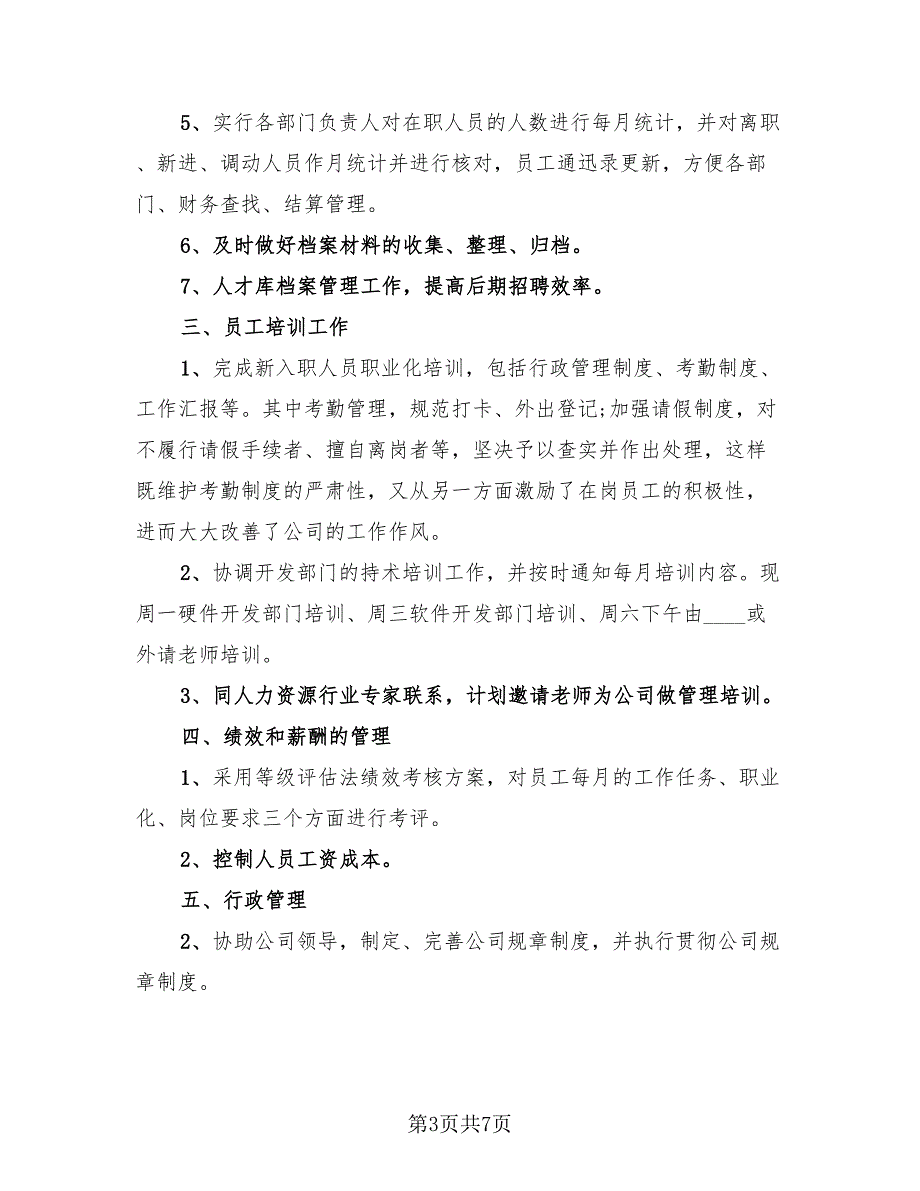 5、实行各部门负责人对在职人员的人数进行每月统计，并对离职
、新进、调动人员作月统计并进行核对，员工通迅录更新，方便各部
门、财务查找、结算管理。
6、及时做好档案材料的收集、整理、归档。
7、人才库档案管理工作，提高后期招聘效率。
三、员工培训工作
1、完成新入职人员职业化培训，包括行政管理制度、考勤制度、
工作汇报等。其中考勤管理，规范打卡、外出登记;加强请假制度，对
不履行请假手续者、擅自离岗者等，坚决予以查实并作出处理，这样
既维护考勤制度的严肃性，又从另一方面激励了在岗员工的积极性，
进而大大改善了公司的工作作风。
2、协调开发部门的持术培训工作，并按时通知每月培训内容。现
周一硬件开发部门培训、周三软件开发部门培训、周六下午由____或
外请老师培训。
3、同人力资源行业专家联系，计划邀请老师为公司做管理培训。
四、绩效和薪酬的管理
1、采用等级评估法绩效考核方案，对员工每月的工作任务、职业
化、岗位要求三个方面进行考评。
2、控制人员工资成本。
五、行政管理
2、协助公司领导，制定、完善公司规章制度，并执行贯彻公司规
章制度。
第3页共7页